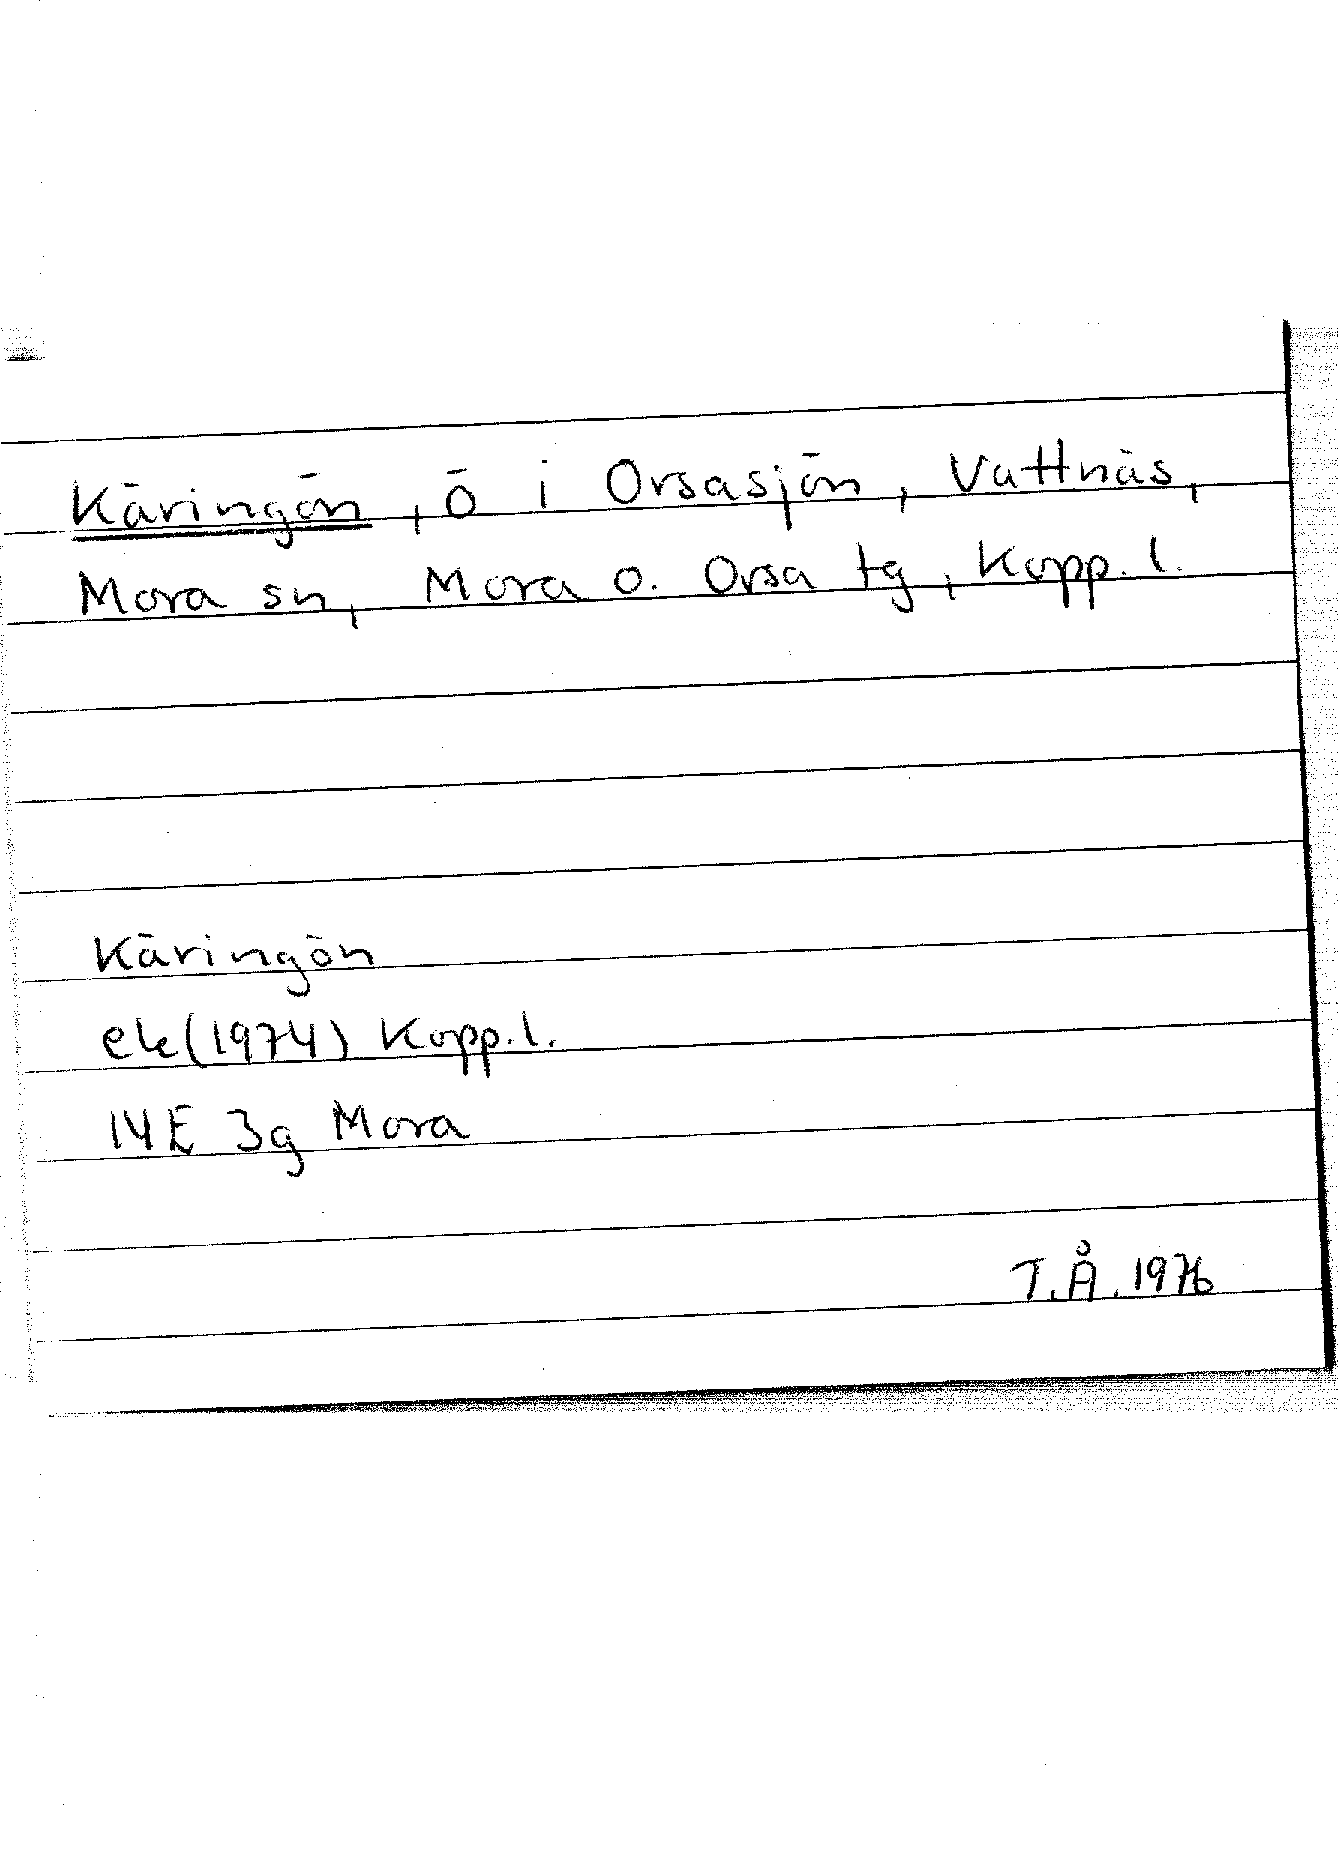 Käringön, ö i Orsasjön, Vattnäs,
Mora sn, Mora o. Orsa tg, Kopp. l.
Käringön
ek(1974) Kopp. l.
14E 3g Mora
T.Å. 1976